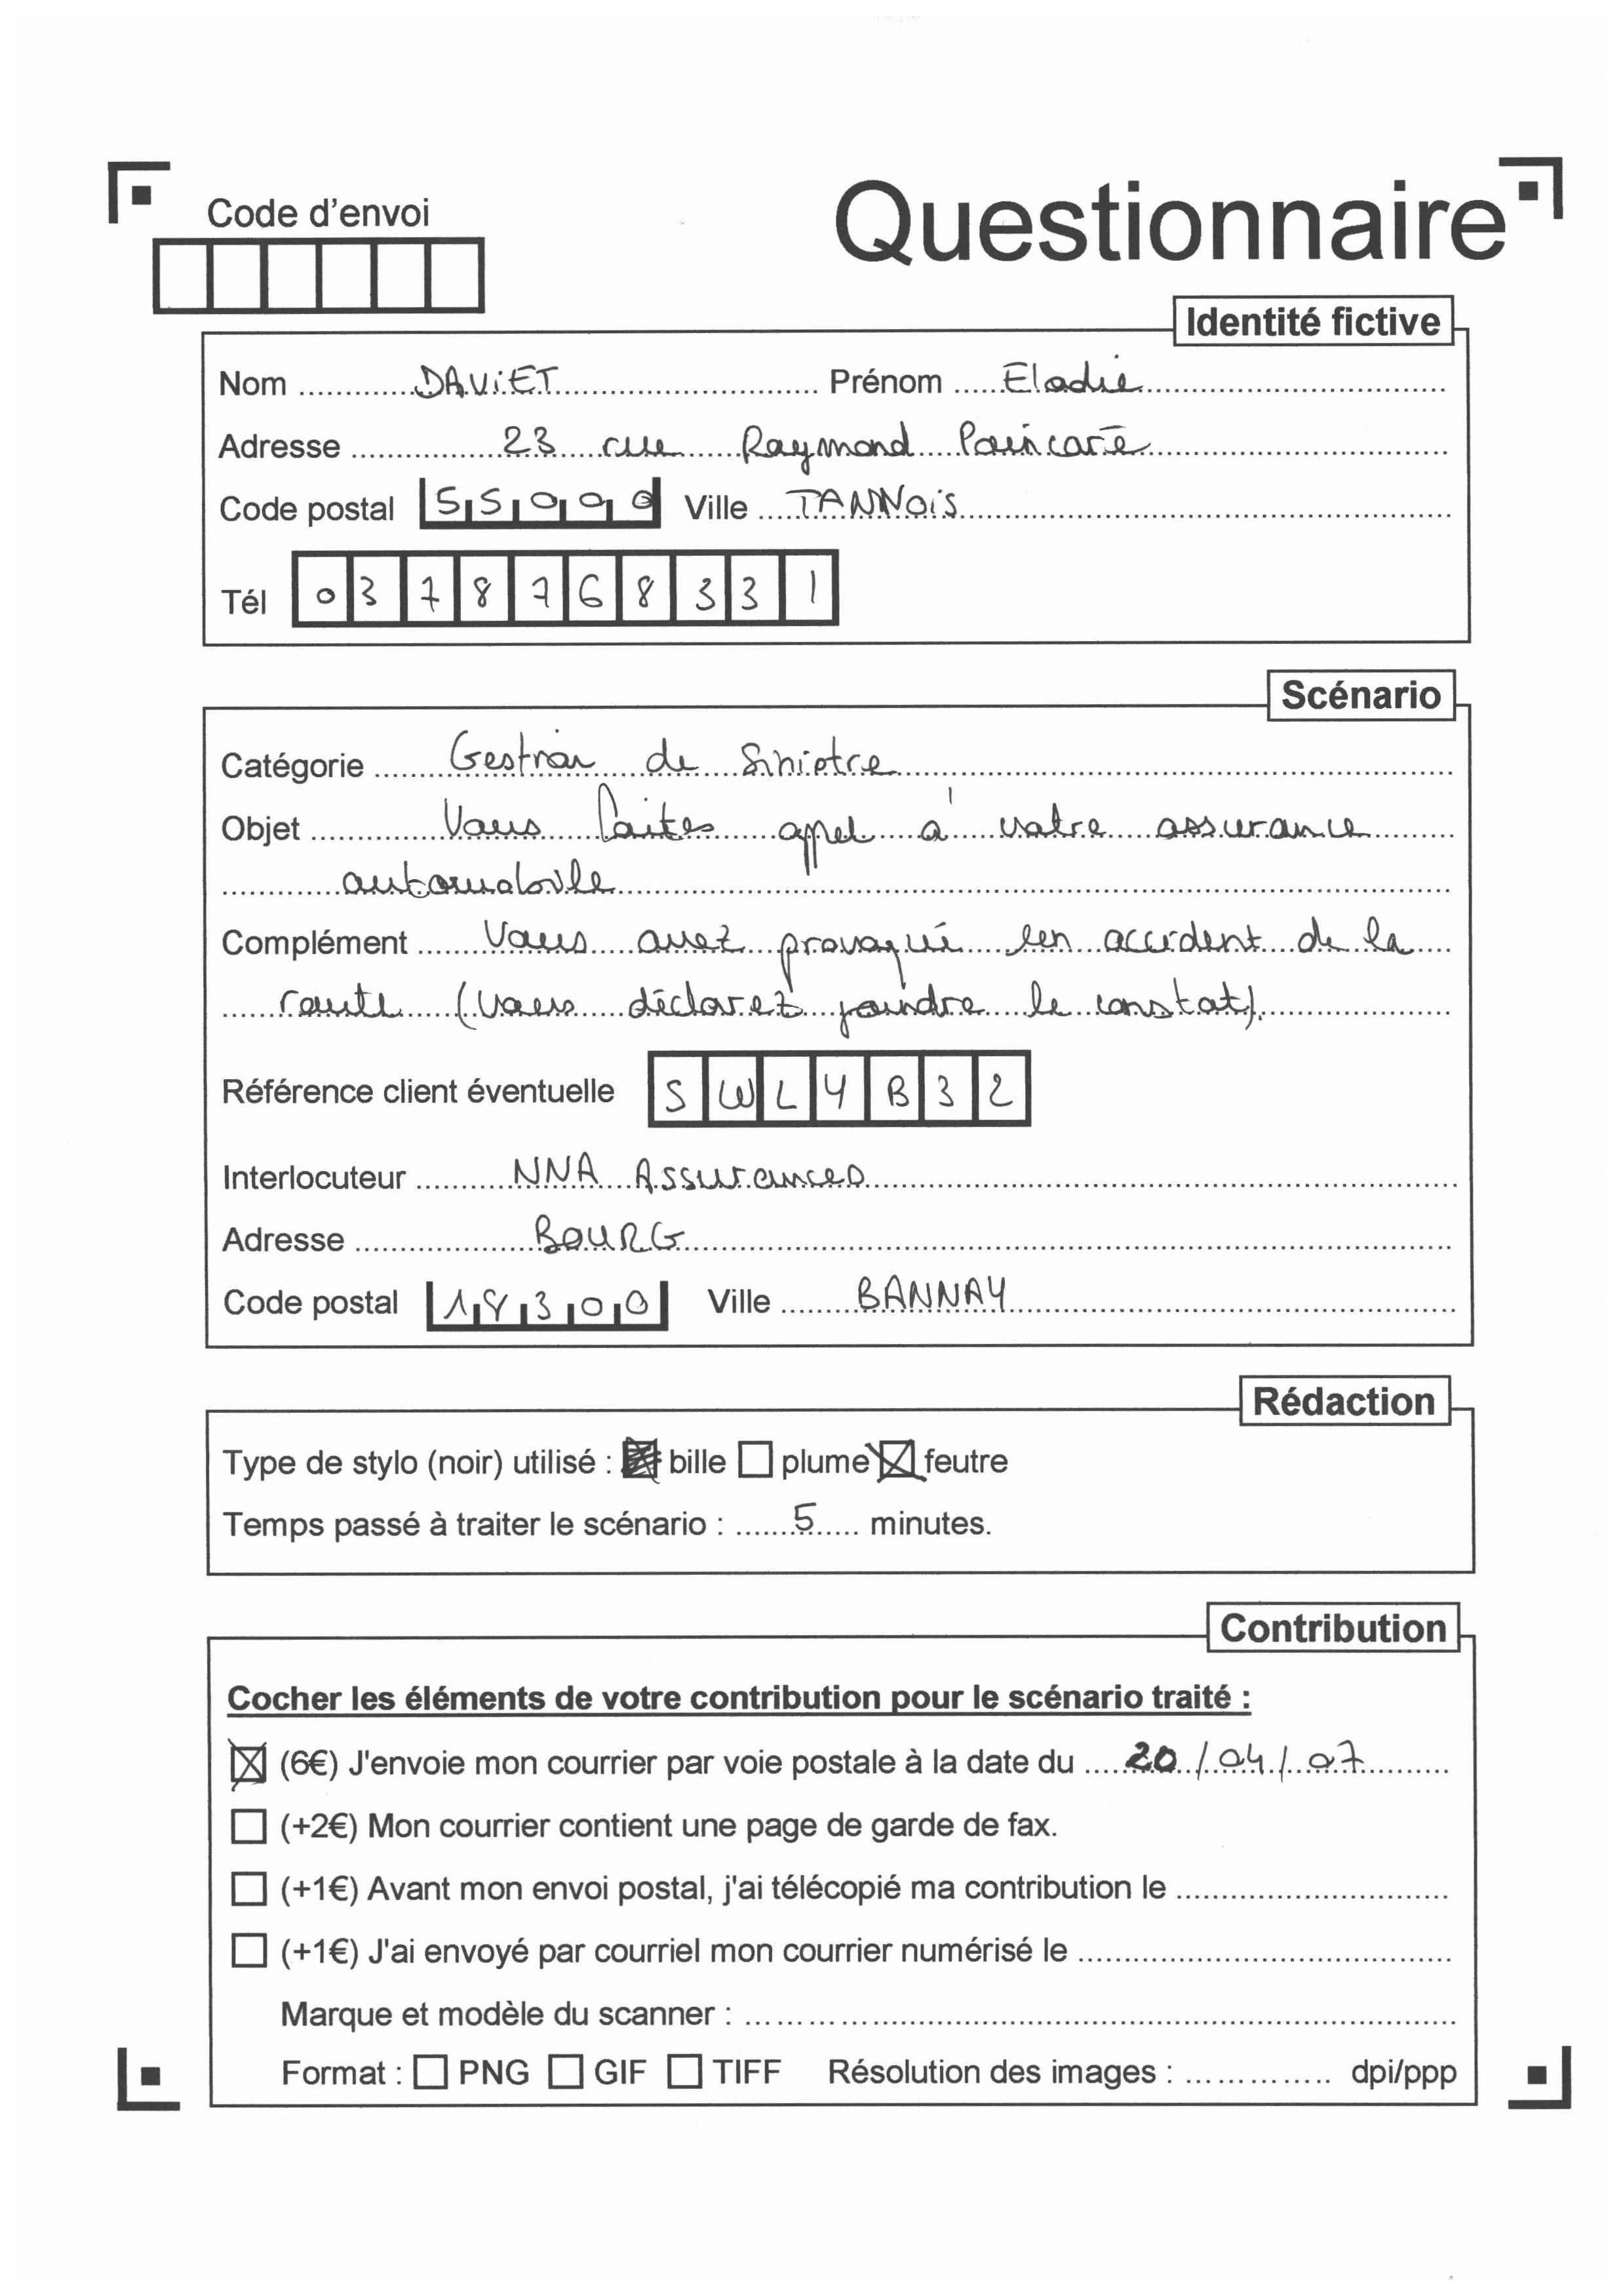 Code d'envoi
Questionnaire
Identité fictive
Nom DAViET Prénom Elodie
Adresse 23 rue Raymond Poincaré
Code postal 55000 Ville TANNOiS
Tél 0378768331
Scénario
Catégorie Gestion de Sinistre
Objet Vous faites appel à votre assurance
automobile
Complément Vous avez provoqué un accident de la
route (vous déclarez joindre le constat).
Référence client éventuelle SWL4B32
Interlocuteur NNA Assurances
Adresse BOURG
Code postal 18300 Ville BANNAY
Rédaction
Type de stylo (noir) utilisé : bille plume feutre
Temps passé à traiter le scénario : 5 minutes.
Contribution
Cocher les éléments de votre contribution pour le scénario traité :
(6€) J'envoie mon courrier par voie postale à la date du 20/04/07
(+2€) Mon courrier contient une page de garde de fax.
(+1€) Avant mon envoi postal, j'ai télécopié ma contribution le
(+1€) J'ai envoyé par courriel mon courrier numérisé le
Marque et modèle du scanner :
Format : PNG GIF TIFF Résolution des images : dpi/ppp